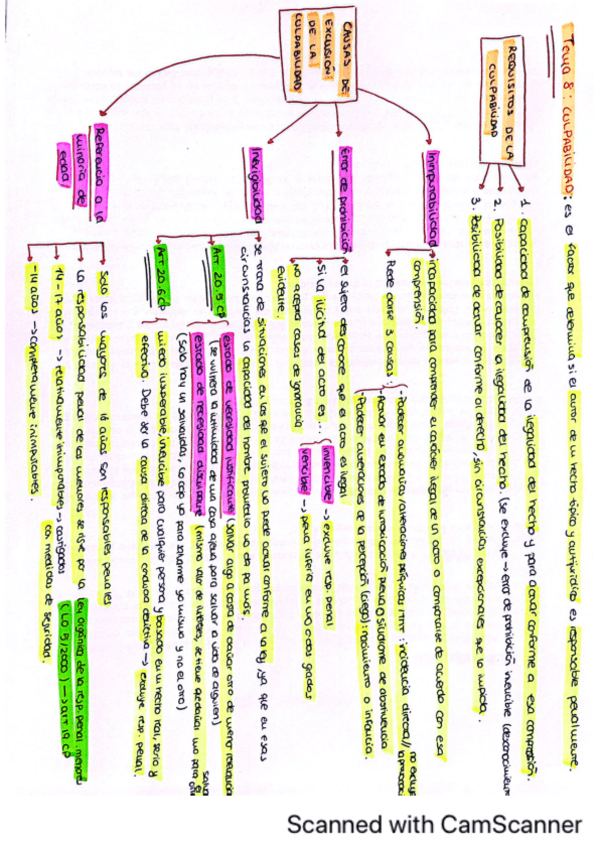 Tema 8: CULPABILIDAD: es el factor que determina si el autor de un hecho típico y antijurídico es responsable penalmente.
REQUISITOS DE LA
CULPABILIDAD
1. Capacidad de comprensión de la ilegalidad del hecho y para actuar conforme a esa comprensión.
2. Posibilidad de conocer la ilegalidad del hecho. (se excluye → error de prohibición invencible (desconocimiento
3. Posibilidad de actuar conforme al derecho, sin circunstancias excepcionales que lo impida.
CAUSAS DE
EXCLUSIÓN
DE LA
CULPABILIDAD
Inimputabilidad
incapacidad para comprender el carácter ilegal de un acto o comportarse de acuerdo con esa
comprensión.
Puede darse 3 causas:
- Padecer anomalías/alteraciones psíquicas : incidencia directa // no excluye
- Actuar en estado de intoxicación plena o síndrome de abstinencia
- Padecer alteraciones de la percepción (ciego): nacimiento o infancia.
Error de prohibición
el sujeto desconoce que el acto es ilegal
Si la ilicitud del acto es ...
invencible → excluye resp. penal
vencible → pena inferior en uno o dos grados
no acepta casos de ignorancia
evidente.
Inexigibilidad
se trata de situaciones en las que el sujeto no puede actuar conforme a la ley ya que en esas
circunstancias la capacidad del hombre promedio no da pa más.
Art 20.5 CP
estado de necesidad justificante (salvar algo a costa de dañar otro de menor
(se vulnera la intimidad de una casa ajena para salvar la vida de alguien)
estado de necesidad disculpante (mismo valor de intereses, se tiene que dañar uno para
salvar
(solo hay un salvavidas, lo cojo yo para salvarme yo misma y no el otro)
Art 20.6 CP
miedo insuperable, invencible para cualquier persona y basado en un hecho real, serio y
efectivo. Debe ser la causa directa de la conducta delictiva → excluye resp. penal.
Referencia a la
minoría de
edad
Solo los mayores de 18 años son responsables penales
La responsabilidad penal de los menores se rige por la ley orgánica de la resp. penal. menores
(LO 5/2000) → art 19 CP
14 - 17 años → relativamente inimputables → castigados
con medidas de seguridad.
- 14 años → completamente inimputables.
Scanned with CamScanner